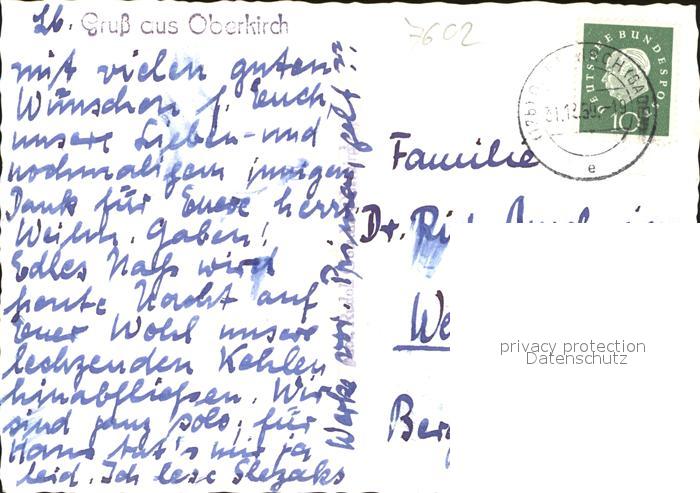 Lb. Gruß aus Oberkirch
mit vielen guten
Wünschen f. Euch
unsere Lieben - und
nochmaligem innigen
Dank für Euere herrl.
Weihn. Gaben!
Edles Naß wird
heute Nacht auf
Euer Wohl unsere
lechzenden Kehlen
hinabfließen. Wir
sind ganz solo, für
Hans tut's mir ja
leid. Ich lese Slezaks
Werke vor. Prosit
7602
DEUTSCHE BUNDESPOST
10
31.12.59
e
Familie
Dr.
We
Ber
privacy protection
Datenschutz